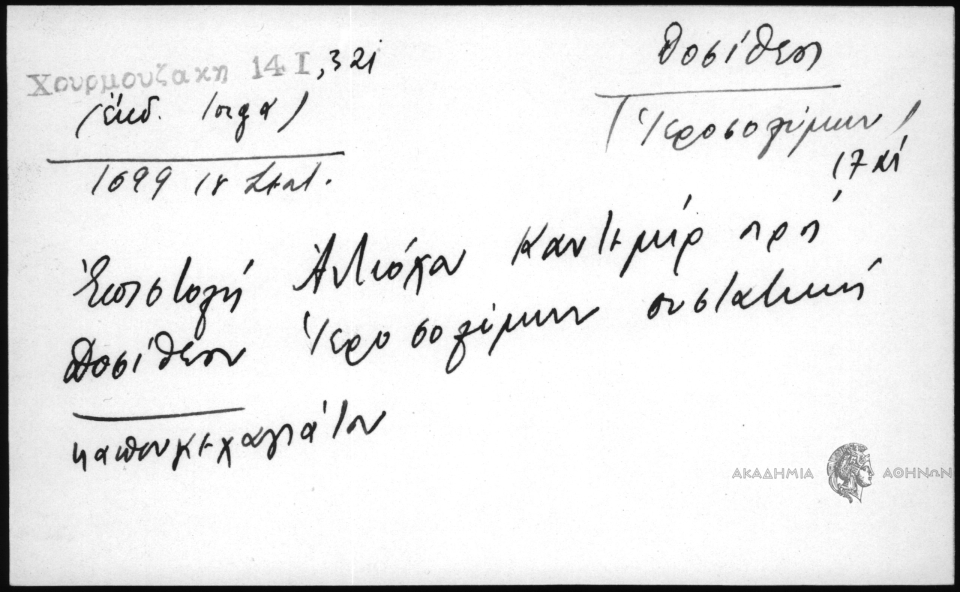 Χουρμουζακη 14 I, 321
(ἐκδ. Ιοργα)
1699 18 Σεπτ.
Δοσίθεος
(Ἱεροσολύμων)
17 αἰ
Ἐπιστολή Ἀντιόχου Καντεμίρ πρὸς
Δοσίθεον Ἱεροσολύμων συστατική
καπουκεχαγιάτου
ΑΚΑΔΗΜΙΑ ΑΘΗΝΩΝ